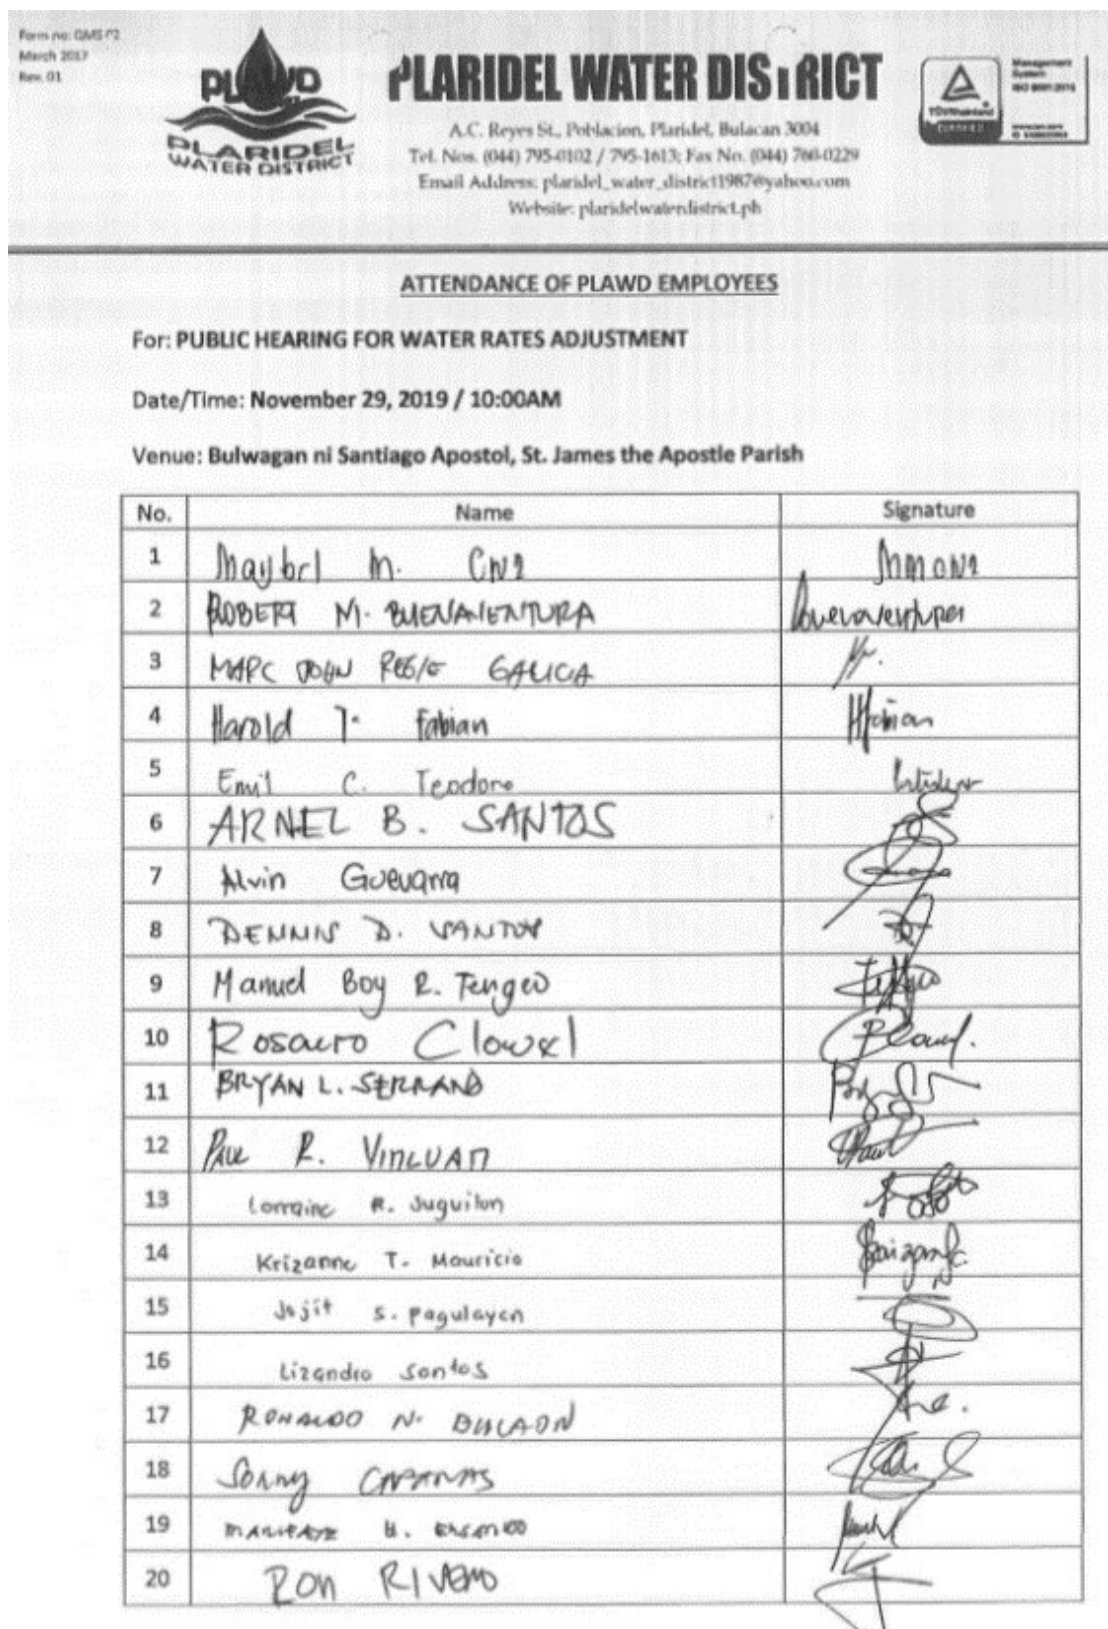 Form no: QMS-02
March 2017
Rev. 01
PLAWD
PLARIDEL
WATER DISTRICT
PLARIDEL WATER DISTRICT
A.C. Reyes St., Poblacion, Plaridel, Bulacan 3004
Tel. Nos. (044) 795-0102 / 795-1613; Fax No. (044) 760-0229
Email Address: plaridel_water_district1987@yahoo.com
Website: plaridelwaterdistrict.ph
Management
System
ISO 9001:2015
TÜVRheinland
CERTIFIED
www.tuv.com
ATTENDANCE OF PLAWD EMPLOYEES
For: PUBLIC HEARING FOR WATER RATES ADJUSTMENT
Date/Time: November 29, 2019 / 10:00AM
Venue: Bulwagan ni Santiago Apostol, St. James the Apostle Parish
No. Name Signature
1 Maybel M. Cruz
2 ROBERT M. BUENAVENTURA Buenaventura
3 MARC JOHN REGIE GALICIA
4 Harold T. Fabian HFabian
5 Emil C. Teodoro
6 ARNEL B. SANTOS
7 Alvin Guevarra
8 DENNIS D. SANTOS
9 Manuel Boy R. Tengco
10 Rosauro Clowel
11 BRYAN L. SERRANO
12 PAUL R. VINLUAN
13 Lorraine R. Juguilon
14 Krizanne T. Mauricio
15 Jojit S. Pagulayan
16 Lizandro Santos
17 RONALDO N. BULAON
18 Sonny CABANAS
19 MARIFAYE H.
20 RON RIVERO